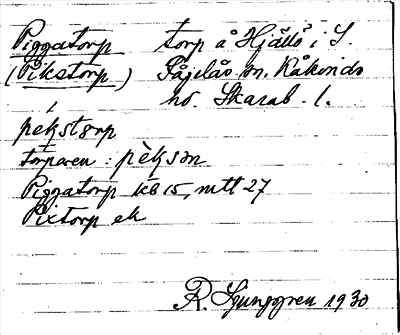 Piggatorp torp å Hjällö i S.
(Pikstorp) Fågelås sn, Kåkinds
hd. Skarab. l.
pekstǫrp
torparen: pèksǝn
Piggatorp KB 15, mtl 27
Pixtorp ek
R. Ljunggren 1930